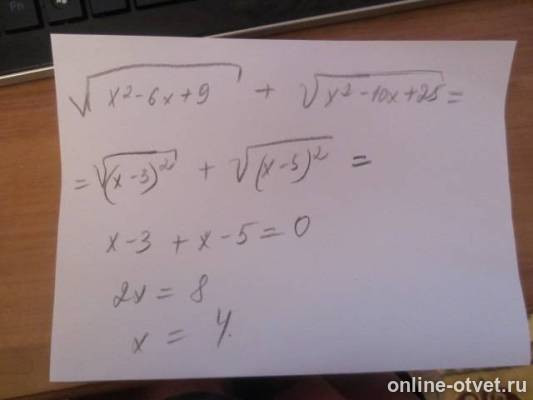 √(x²-6x+9) + √(x²-10x+25) =
= √(x-3)² + √(x-5)² =
x-3 + x-5 = 0
2x = 8
x = 4.
online-otvet.ru